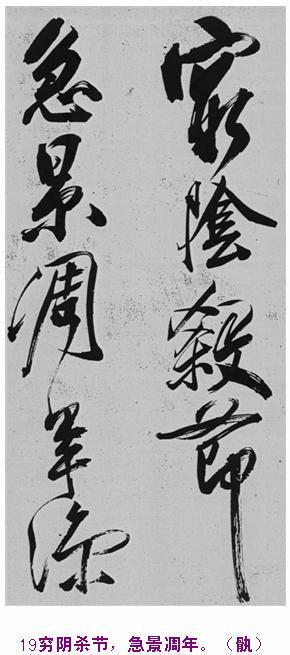 窮陰殺節
急景凋年涼
19穷阴杀节，急景凋年。（骫）